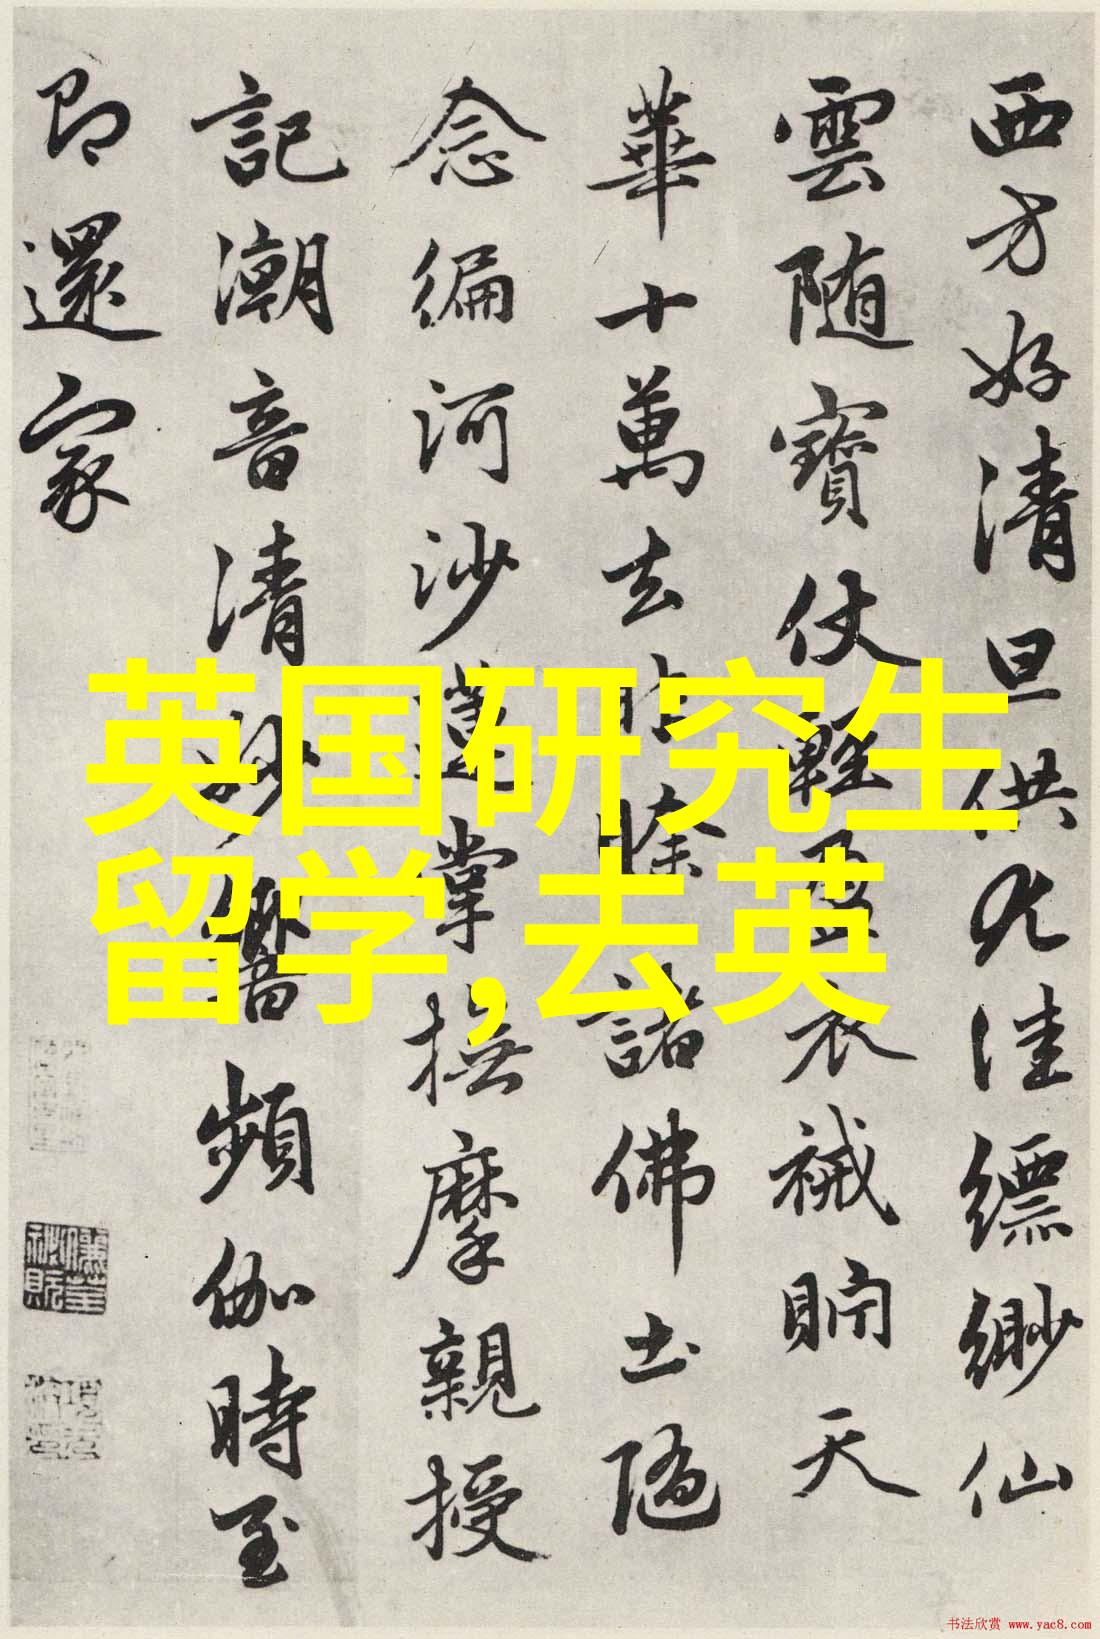 西方好清旦供尤佳縹緲仙
雲随寶仗輕盈衣裓貯天
華十萬去昨晬諸佛土隨
念徧河沙蓮掌撫摩親授
記潮音清妙響頻伽時至
即還家
英国研究生
留学,去英
书法欣赏 www.yac8.com